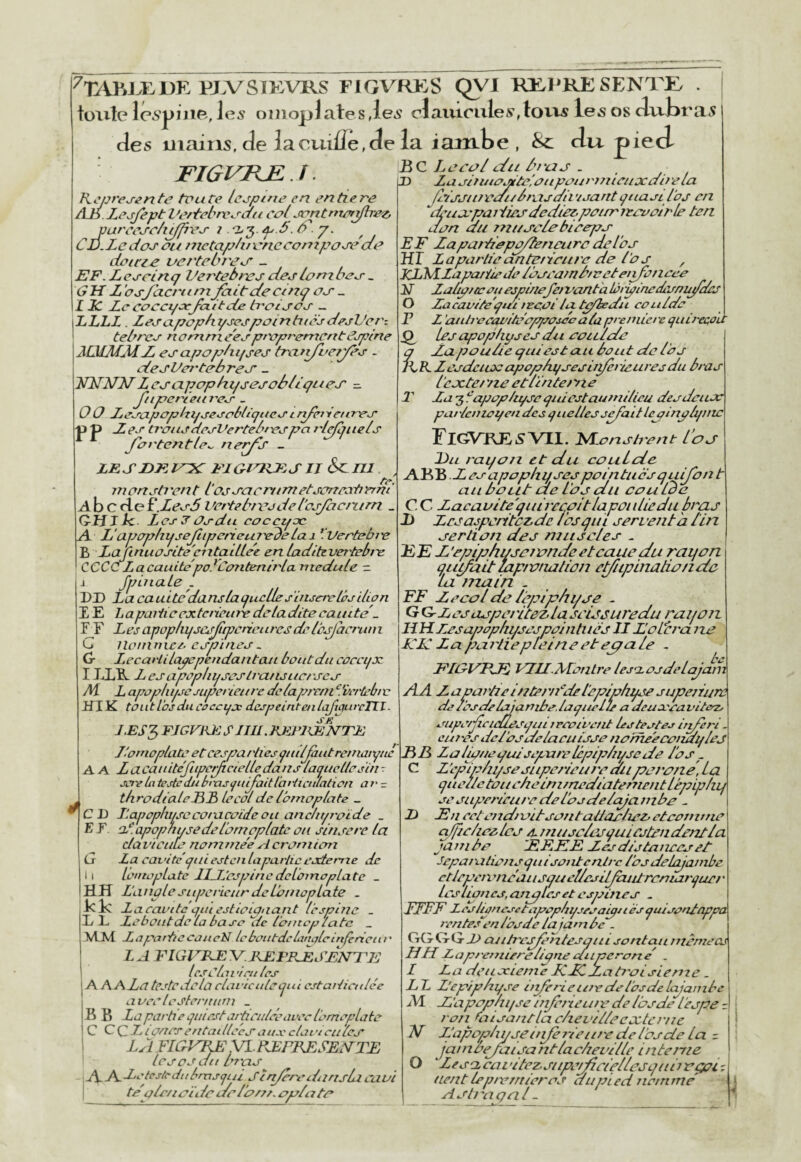 TABLE DE PLVSIEVRS FIGVRES QVI REPRESENTE .
toute lespine, les omoplates, les clauicules, tous les os du bras
des mains, de la cuisse, de la iambe, & du pied
FIGVRE . I.
Represente toute lespine en entiere
AB. Les sept Vertebres du col sont
1. 2. 3. 4. 5. 6. 7.
CD. Le dos ou metaphrene composé de
douze vertebres _
EF. Les cinq Vertebres des Lombes _
GH L'os sacrum fait de cinq os _
IK Le coccyx fait de trois os _
LLLL. Les apophyses pointues des Ver:
tebres nommées proprement Espine
MMMM Les apophyses tranfuerses -
des Vertebres _
NNNN Les apophyses obliques =
superieures _
OO Les apophyses obliques inferieures
PP Les trous des Vertebres par lesquels
sortent les nerfs _
LES DEVX FIGVRES II & III
monstrent l'os sacrum et son
Abcdef Les 5 Vertebres de l'os sacrum _
GHIk. Les 3 Os du coccyx
A L'apophyse superieure de la 1 Vertebre
B La sinuosité entaillée en ladite vertebre
CCCC La cauité po.r Contenir la medule =
1 spinale _
DD La cauite dans laquelle s'insere los ilion
EE La partie exterieure de la dite cauite _
FF Les apophyses superieures de los sacrum
G nommez espines _
G Le cartilage pendant au bout du coccyx
IILR Les apophyses transuerses
M L'apophyse superieure de la prem.e Vertebre
HIK tout los du coccyx despeint en la figure III.
LES 3 FIGVRES IIII. REPRENTE
L'omoplate et ces parties quil faut remarque
AA La cauité superficielle dans laquelle s'in:
sere la teste du bras qui fait l'articulation ar =
throdiale BB le col de l'omoplate _
CD L'apophyse coracoide ou anchyroide _
EF 2.e apophyse de lomoplate ou sinsere la
clauicule nommée Acromion
G La cavité qui est en la partie externe de
ii lomoplate II L'espine de lomoplate _
HH L'angle superieur de L'omoplate _
kk La cavité qui est ioignant lespine _
LL Le bout de la base de l'omoplate _
MM La partie caueN le bout de langle inferieur
LA FIGVRE V. REPRESENTE
les Clauicules
AAA La teste de la clavicule qui est articulée
avec le sternum _
BB La partie qui est articulée avec lomoplate
CCC Lignes entaillées aux claviculles
LA FIGVRE VI. REPRESENTE
les os du bras
AA La teste du bras qui s'insere dans la cavi
té glenoide de l'om. oplate
BC Le col du bras _
D La sinuosité, ou pour mieux dire la
scissure du bras divisant quasi los en
deux parties dediez pour recevoir le ten
don du muscle biceps
EF La partie posterieure de los
HI La partie anterieure de l'os
KLM La partie de l'os cambre et enfoncée
N La ligne ou espine servant a l'origine des muscles
O La cavité qui reçoi la teste du coulde
P L'autre cavité opposée a la premiere qui reçoit
Q les apophyses du coulde
q La poulie qui est au bout de l'os
RR Les deux apophyses inferieures du bras
l'externe et l'interne
T La 3.e apophyse qui est au milieu des deux
par le moyen desquelles se fait le ginglyme
FIGVRES VII. Monstrent l'os
Du rayon et du coulde
ABB. Les apophyses pointues qui font
au bout de l'os du coulde
CC La cavité qui reçoit la poulie du bras
D Les asperitéz de los qui servent a lin
sertion des muscles -
EE L'epiphyse ronde et caue du rayon
qui fait la pronation et supination de
la main _
FF Le col de lepiphyse _
GG Les asperitez la scissure du rayon
HH Les apophyses pointues II L'olecrane
KK La partie pleine et egale _
FIGVRE VIII. Montre les 2 os de la jambe
AA La partie intern.e de l'epiphyse superiure
de los de la jambe. laquelle a deux cavitez
superficielles qui recoivent les testes inferi-
eures de los de la cuisse nomée condyles
BB La ligne qui separe lepiphyse de los _
C L'epiphyse superieure du perone. La
quelle touche immediatement l'epiphy
se superieure de los de la jambe _
D En cet endroit sont attachez et comme
afichez les 4 muscles qui estendent la
jambe EEEE Les distances et
separations qui sont entre los de la jambe
et le peroné ausquelles il faut remarquer
les lignes, angles et espines _
FFFF Les lignes et apophyses aigues qui sont appa
rentes en los de la jambe _
GGGG D'autres fentes qui sont au meme os
HH La premiere ligne du perone _
I La deuxieme KK La troisieme _
LL L'epiphyse inferieure de los de la jambe
M L'apophyse inferieure de los de
faisant la cheville externe
N L'apophyse inferieure de los de la =
jambe faisant la cheville interne
O Les 2 cavitez superficielles qui reçoi:
uent le premier os du pied nomme
Astragal _